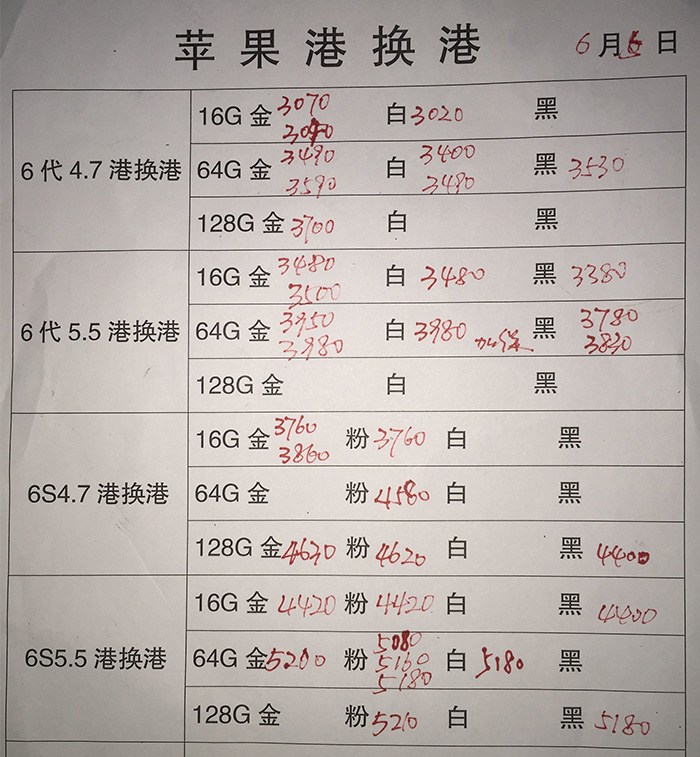 苹果港换港 6月6日
6代4.7港换港
16G 金 3070 白 3020 黑
3090
64G 金 3490 白 3400 黑 3530
3590 3480
128G 金 3700 白 黑
6代5.5港换港
16G 金 3480 白 3480 黑 3380
3500
64G 金 3950 白 3980 黑 3780
3980 3830
128G 金 白 黑
6S4.7港换港
16G 金 3760 粉 3760 白 黑
3860
64G 金 粉 4580 白 黑
128G 金 4630 粉 4620 白 黑 4400
6S5.5港换港
16G 金 4420 粉 4420 白 黑 4400
64G 金 5200 粉 5080 白 5180 黑
5160
5180
128G 金 粉 5210 白 黑 5180